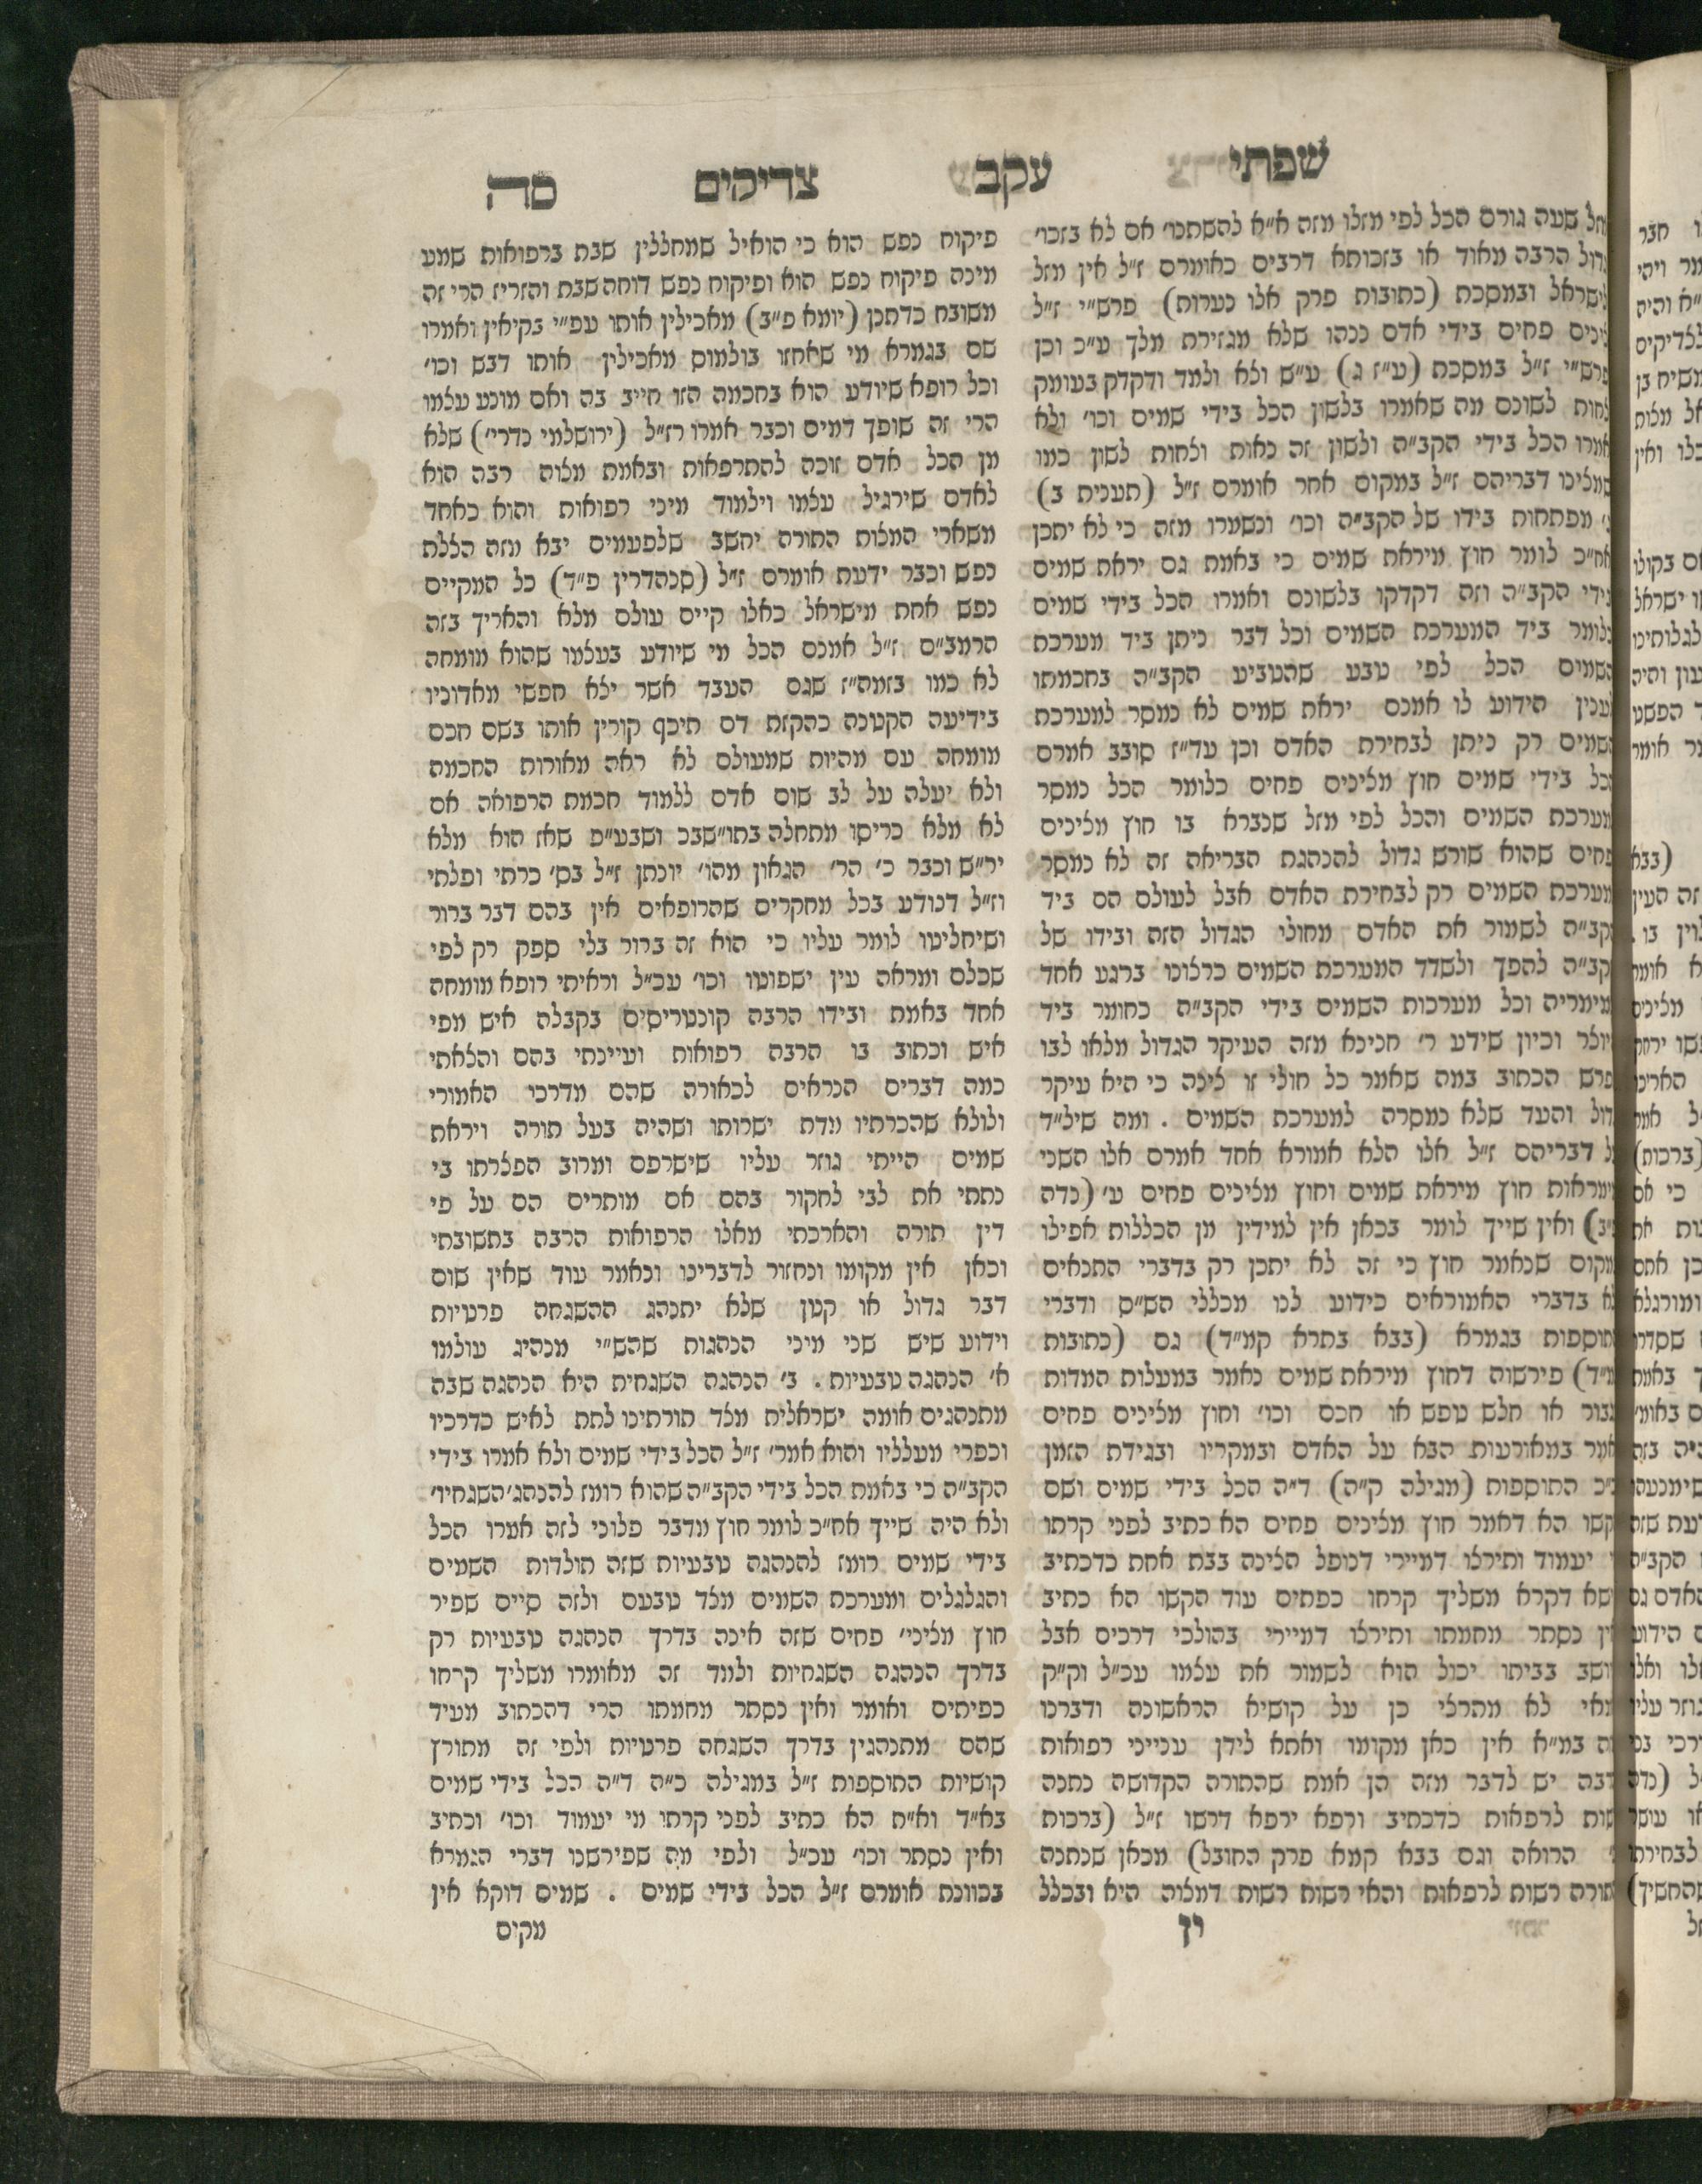 שפתי עקב צדיקים סה
מזל שעה גורם הכל לפי מזלו מזה א"א להשתנו' אם לא בזכו'
גדול הרבה מאוד או בזכותא דרבים כאומרם ז"ל אין מזל
לישראל ובמסכת (כתובות פרק אלו נערות) פרש"י ז"ל
צינים פחים בידי אדם ננהו שלא מגזירת מלך ע"כ וכן
פרש"י ז"ל במסכת (ע"ז ג) ע"ש וצא ולמד ודקדק בעומק
לחות לשונם מה שאמרו בלשון הכל בידי שמים וכו' ולא
אמרו הכל בידי הקב"ה ולשון זה נאות ולחות לשון כמו
שמצינו דבריהם ז"ל במקום אחר אומרם ז"ל (תענית ב)
ג' מפתחות בידו של הקב"ה וכו' ונשמרו מזה כי לא יתכן
אח"כ לומר חוץ מיראת שמים כי באמת גם יראת שמים
בידי הקב"ה וזה דקדקו בלשונם ואמרו הכל בידי שמים
כלומר ביד המערכת השמים וכל דבר ניתן ביד מערכת
השמים הכל לפי טבע שהטביע הקב"ה בחכמתו
כענין הידוע לו אמנם יראת שמים לא נמסר למערכת
השמים רק ניתן לבחירת האדם וכן עד"ז סובב אמרם
הכל בידי שמים חוץ מצינים פחים כלומר הכל נמסר
מערכת השמים והכל לפי מזל שנברא בו חוץ מצינים
פחים שהוא שורש גדול להנהגת הבריאה זה לא נמסר
מערכת השמים רק לבחירת האדם אבל לעולם הם ביד
הקב"ה לשמור את האדם מחולי הגדול הזה ובידו של
הקב"ה להפך ולשדד המערכת השמים כרצונו ברגע אחד
מימריה וכל מערכות השמים בידי הקב"ה כחומר ביד
היוצר וכיון שידע ר' חנינא מזה העיקר הגדול מלאו לבו
לפרש הכתוב במה שאמר כל חולי זו צינה כי היא עיקר
גדול והעד שלא נמסרה למערכת השמים . ומה שיל"ד
על דבריהם ז"ל אלו הלא אמורא אחד אמרם אלו השני
מימראות חוץ מיראת שמים וחוץ מצינים פחים ע' (נדה
ט"ב) ואין שייך לומר בכאן אין למידין מן הכללות אפילו
במקום שנאמר חוץ כי זה לא יתכן רק בדברי התנאים
לא בדברי האמוראים כידוע לנו מכללי הש"ס ודברי
תוספות בגמרא (בבא בתרא קמ"ד) גם (כתובות
מ"ד) פירשוה דחוץ מיראת שמים נאמר במעלות המדות
גבור או חלש טפש או חכם וכו' וחוץ מצינים פחים
נאמר במאורעות הבא על האדם ובמקריו ובגידת הזמן
ע"כ התוספות (מגילה ק"ה) ד"ה הכל בידי שמים ושם
הקשו הא דאמר חוץ מצינים פחים הא כתיב לפני קרתו
מי יעמוד ותירצו דמיירי דכופל הצינה בבת אחת כדכתיב
רישא דקרא משליך קרחו כפתים עוד הקשו הא כתיב
ואין נסתר מחמתו ותירצו דמיירי בהולכי דרכים אבל
יושב בביתו יכול הוא לשמור את עצמו עכ"ל וק"ק
אמאי לא מתרצי כן על קושיא הראשונה ודברנו
מזה במ"א אין כאן מקומו ואתא לידן ענייני רפואות
הרבה יש לדבר מזה הן אמת שהתורה הקדושה נתנה
רשות לרפאות כדכתיב ורפא ירפא דרשו ז"ל (ברכות
ס' הרואה וגם בבא קמא פרק החובל) מכאן שנתנה
תורה רשות לרפאות והאי רשות רשות דמצוה היא ובכלל
ין
פיקוח נפש הוא כי הואיל שמחללין שבת ברפואות שמע
מינה פיקוח נפש הוא ופיקוח נפש דוחה שבת והזריז הרי זה
משובח כדתנן (יומא פ"ב) מאכילין אותו עפ"י בקיאין ואמרו
שם בגמרא מי שאחזו בולמוס מאכילין אותו דבש וכו'
וכל רופא שיודע הוא בחכמה הזו חייב בה ואם מונע עצמו
הרי זה שופך דמים וכבר אמרו רז"ל (ירושלמי נדרי') שלא
מן הכל אדם זוכה להתרפאות ובאמת מצוה רבה הוא
לאדם שירגיל עצמו וילמוד מיני רפואות והוא כאחד
משארי המצות התורה יחשב שלפעמים יבא מזה הצלת
נפש וכבר ידעת אומרם ז"ל (סנהדרין פ"ד) כל המקיים
נפש אחת מישראל כאלו קיים עולם מלא והאריך בזה
הרמב"ם ז"ל אמנם הכל מי שיודע בעצמו שהוא מומחה
לא כמו בזמה"ז שגם העבד אשר יצא חפשי מאדוניו
בידיעה הקטנה כהקזת דם תיכף קורין אותו בשם חכם
מומחה עם מהיות שמעולם לא ראה מאורות החכמה
ולא יעלה על לב שום אדם ללמוד חכמת הרפואה אם
לא מלא כריסו מתחלה בתו"שבכ ושבע"פ שאז הוא מלא
יר"ש וכבר כ' הר' הגאון מהו' יונתן ז"ל בס' כרתי ופלתי
וז"ל דנודע בכל מחקרים שהרופאים אין בהם דבר ברור
ושיחליטו לומר עליו כי הוא זה ברור בלי ספק רק לפי
שכלם ומראה עין ישפוטו וכו' עכ"ל וראיתי רופא מומחה
אחד באמת ובידו הרבה קונטריסים בקבלה איש מפי
איש וכתוב בו הרבה רפואות ועיינתי בהם והצאתי
כמה דברים הנראים לכאורה שהם מדרכי האמורי
ולולא שהכרתיו מדת ישרותו ושהיה בעל תורה ויראת
שמים הייתי גוזר עליו שישרפם ומרוב הפצרתו בי
נתתי את לבי לחקור בהם אם מותרים הם על פי
דין תורה והארכתי מאלו הרפואות הרבה בתשובתי
וכאן אין מקומו ונחזור לדברינו ונאמר עוד שאין שום
דבר גדול או קטן שלא יתנהג ההשגחה פרטיות
וידוע שיש שני מיני הנהגות שהש"י מנהיג עולמו
א' הנהגה טבעיות . ב' הנהגה השגחית היא הנהגה שבה
מתנהגים אומה ישראלית מצד תורתינו לתת לאיש כדרכיו
וכפרי מעלליו והוא אמר' ז"ל הכל בידי שמים ולא אמרו בידי
הקב"ה כי באמת הכל בידי הקב"ה שהוא רומז להנהג' השגחיו'
ולא היה שייך אח"כ לומר חוץ מדבר פלוני לזה אמרו הכל
בידי שמים רומז להנהגה טבעיות שזה תולדות השמים
והגלגלים ומערכת השמים מצד טבעם ולזה סיים שפיר
חוץ מציני' פחים שזה אינה בדרך הנהגה טבעיות רק
בדרך הנהגה השגחיות ולמד זה מאומרו משליך קרחו
כפיתים ואומר ואין נסתר מחמתו הרי דהכתוב מעיד
שהם מתנהגין בדרך השגחה פרטיות ולפי זה מתורץ
קושיות התוספות ז"ל במגילה כ"ה ד"ה הכל בידי שמים
בא"ד וא"ת הא כתיב לפני קרתו מי יעמוד וכו' וכתיב
ואין נסתר וכו' עכ"ל ולפי מה שפירשנו דברי הגמרא
בכוונת אומרם ז"ל הכל בידי שמים . שמים דוקא אין
מקום